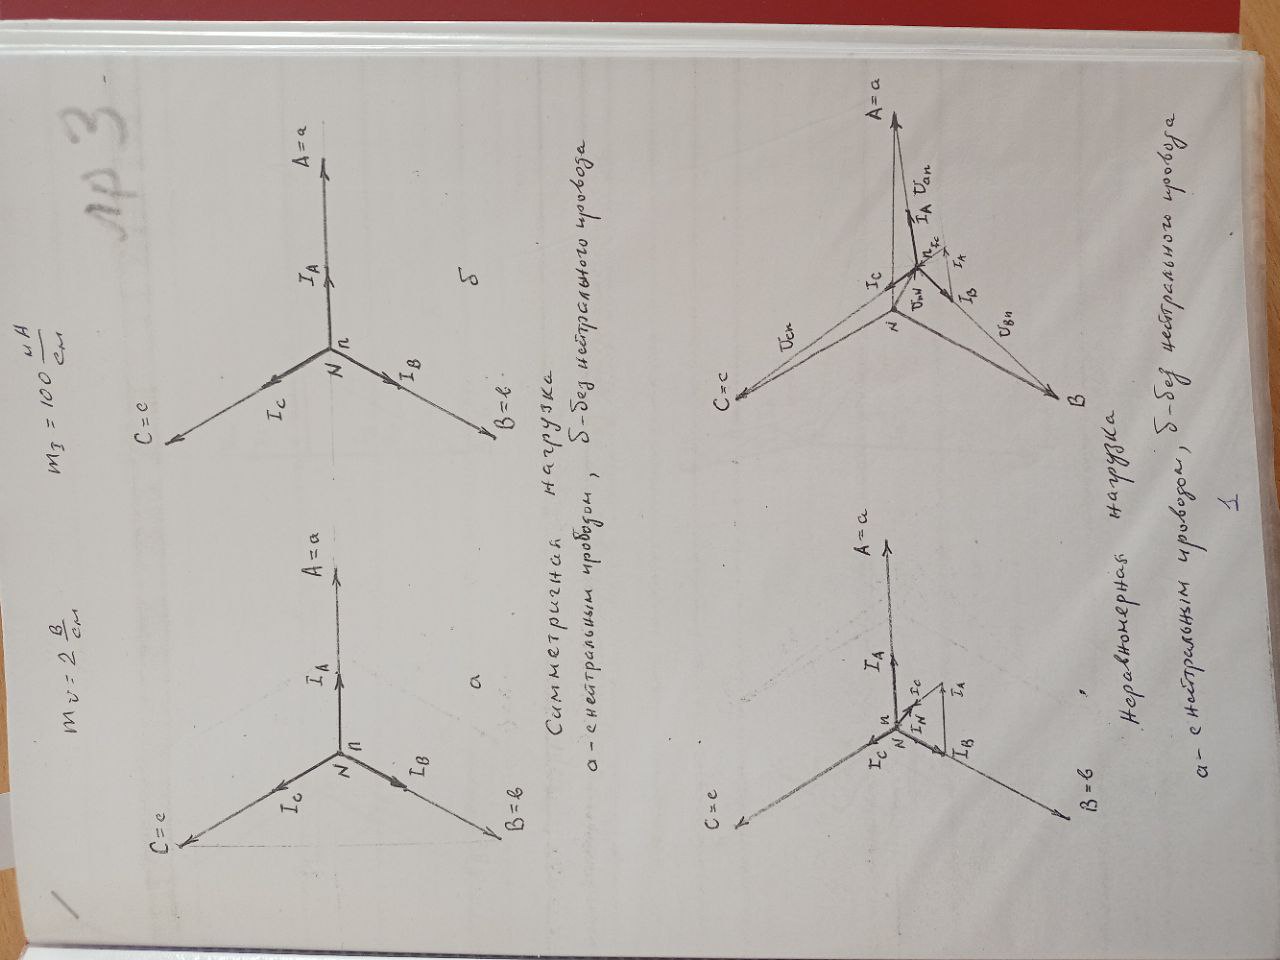 mU = 2 В/см mI = 100 мА/см
лр 3
C=c C=c
IC IC
IA A=a IA A=a
N n N n
IB IB
а б
B=в B=в
Симметричная нагрузка
а - с нейтральным проводом, б - без нейтрального провода
C=c C=c
Ucn
IC n IA A=a IC A=a
N IN IC N UnN n IA Uan
IC
IB IA IB IA
UBn
B=в B
Неравномерная нагрузка
а - с нейтральным проводом, б - без нейтрального провода
1